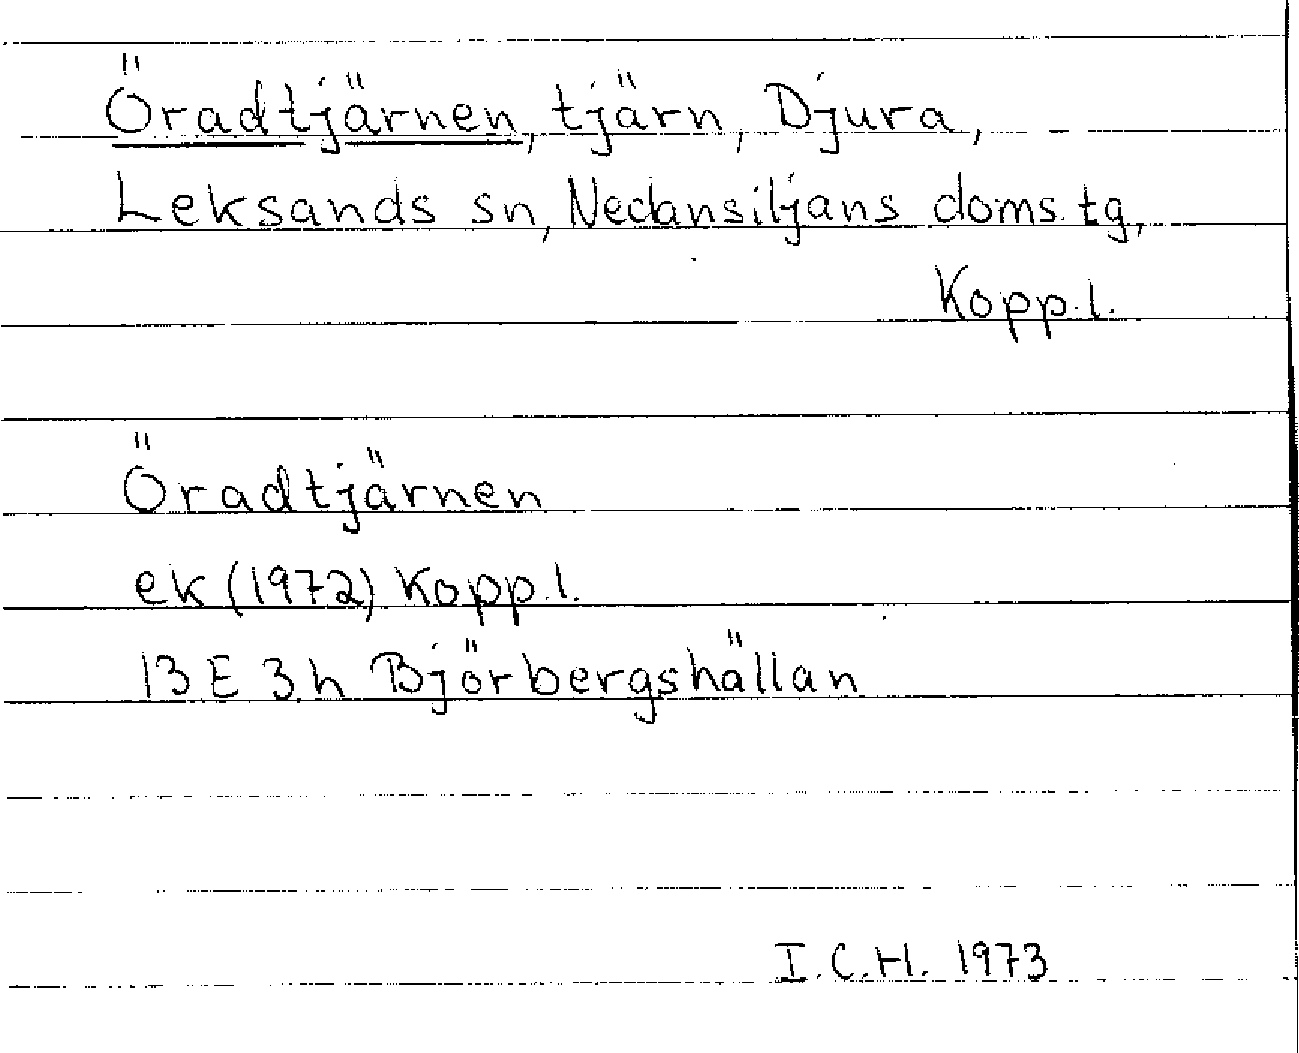 Öradtjärnen, tjärn, Djura,
Leksands sn, Nedansiljans doms.tg,
Kopp.l.
Öradtjärnen
ek (1972) Kopp.l.
13 E 3 h Björbergshällan
I.C.H. 1973